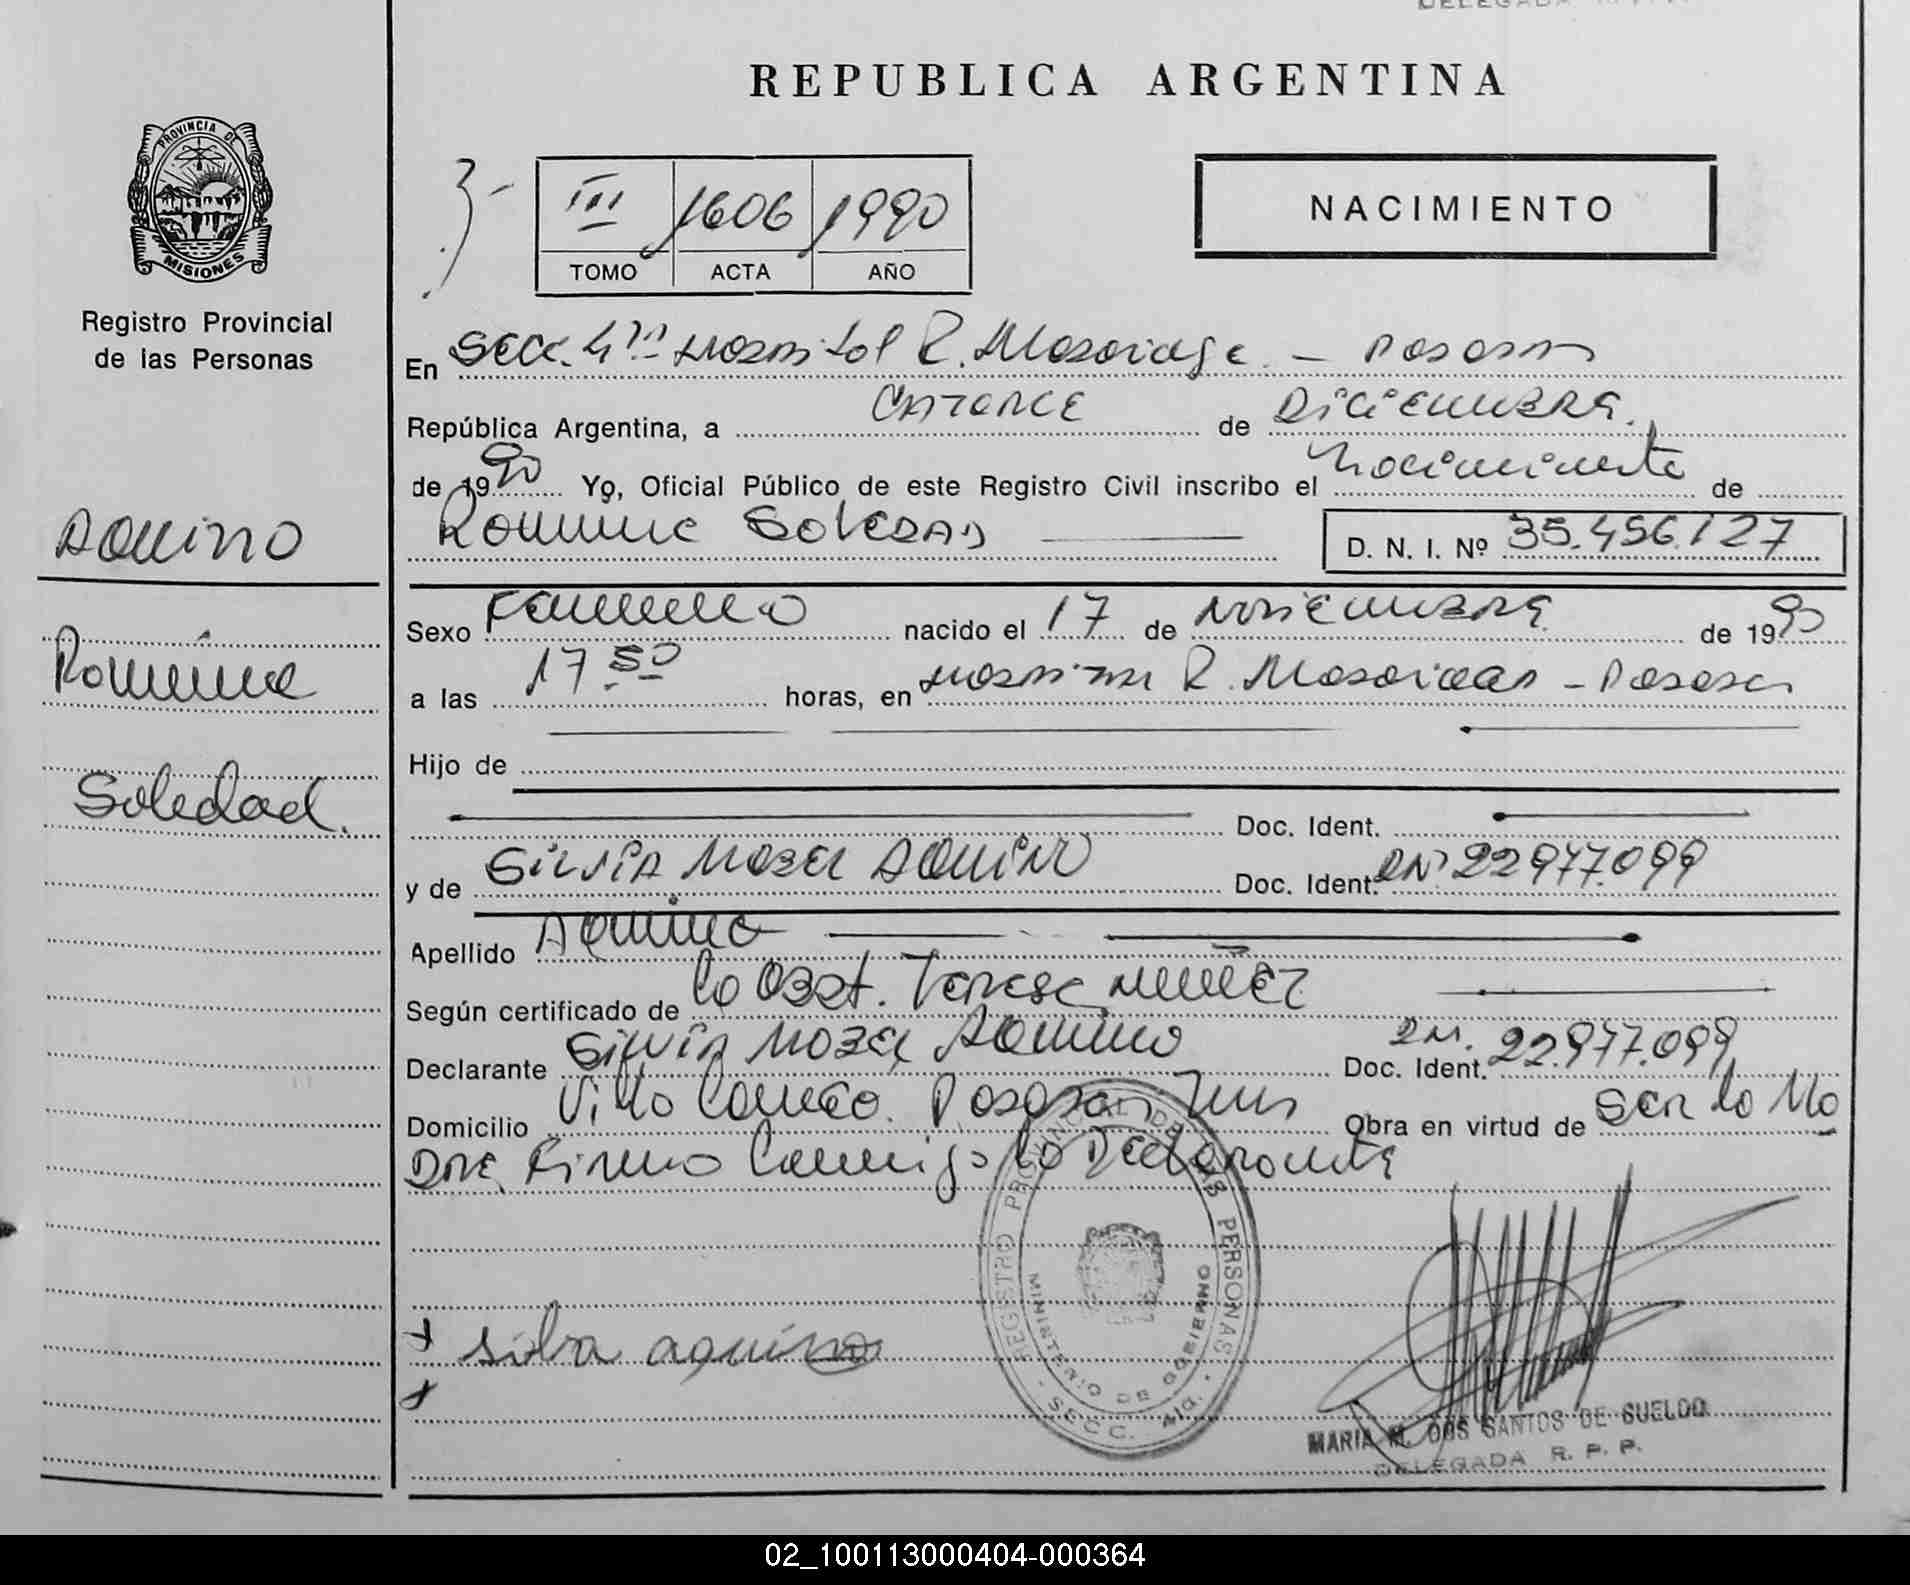 REPUBLICA ARGENTINA
PROVINCIA DE
MISIONES
Registro Provincial
de las Personas
III 1606 1990
TOMO ACTA AÑO
NACIMIENTO
En Secc. 4ta Hospital R. Madariaga - Posadas
República Argentina, a Catorce de Diciembre.
de 1990 Yo, Oficial Público de este Registro Civil inscribo el Nacimiento de
Romina Soledad D. N. I. Nº 35.456.127
Aquino
Romina
Soledad.
Sexo Femenino nacido el 17 de Noviembre de 1990
a las 17 50 horas, en Hospital R. Madariaga - Posadas
Hijo de
Doc. Ident.
y de Silvia Mabel Aquino Doc. Ident. DNI 22977.099
Apellido Aquino
Según certificado de la Obst. Teresa Nuñez
Declarante Silvia Mabel Aquino Doc. Ident. DNI. 22.977.099
Domicilio Villa Posadas Mnes Obra en virtud de Ser la Ma
dre. Firma Conmigo la Declarante
REGISTRO PROVINCIAL DE LAS PERSONAS
MINISTERIO DE GOBIERNO
SECC. 4ta.
silva aquino
MARIA M. DOS SANTOS DE SUELDO
DELEGADA R. P. P.
02_100113000404-000364